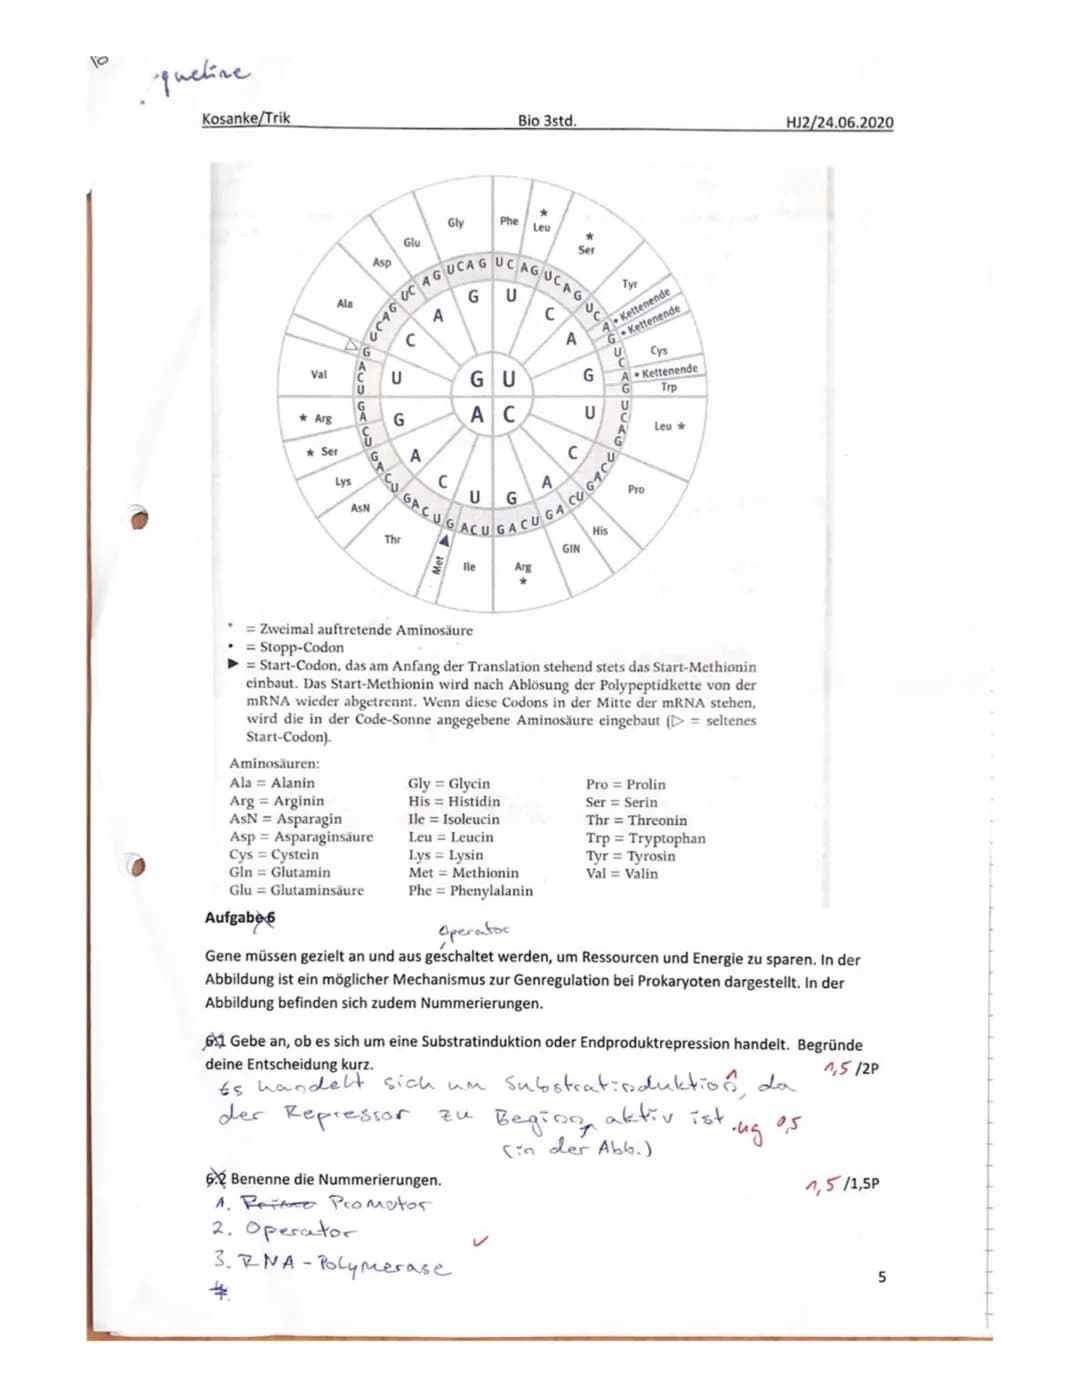 10
queline
Kosanke/Trik Bio 3std. HJ2/24.06.2020
Gly Phe * Leu
Glu * Ser
Asp Tyr
Ala • Kettenende
• Kettenende
Val Cys
• Kettenende
Trp
* Arg Leu *
* Ser
Lys Pro
AsN
Thr His
GIN
Met Ile Arg *
G U
A C
* = Zweimal auftretende Aminosäure
• = Stopp-Codon
▶ = Start-Codon, das am Anfang der Translation stehend stets das Start-Methionin
einbaut. Das Start-Methionin wird nach Ablösung der Polypeptidkette von der
mRNA wieder abgetrennt. Wenn diese Codons in der Mitte der mRNA stehen,
wird die in der Code-Sonne angegebene Aminosäure eingebaut (▷ = seltenes
Start-Codon).
Aminosäuren:
Ala = Alanin Gly = Glycin Pro = Prolin
Arg = Arginin His = Histidin Ser = Serin
AsN = Asparagin Ile = Isoleucin Thr = Threonin
Asp = Asparaginsäure Leu = Leucin Trp = Tryptophan
Cys = Cystein Lys = Lysin Tyr = Tyrosin
Gln = Glutamin Met = Methionin Val = Valin
Glu = Glutaminsäure Phe = Phenylalanin
Aufgabe 6
Operator
Gene müssen gezielt an und aus geschaltet werden, um Ressourcen und Energie zu sparen. In der
Abbildung ist ein möglicher Mechanismus zur Genregulation bei Prokaryoten dargestellt. In der
Abbildung befinden sich zudem Nummerierungen.
6.1 Gebe an, ob es sich um eine Substratinduktion oder Endproduktrepression handelt. Begründe
deine Entscheidung kurz. 1,5 /2P
Es handelt sich um Substratinduktion, da
der Repressor zu Beginn aktiv ist. ug 0,5
(in der Abb.)
6.2 Benenne die Nummerierungen. 1,5 /1,5P
1. Promotor
2. Operator
3. RNA-Polymerase
5